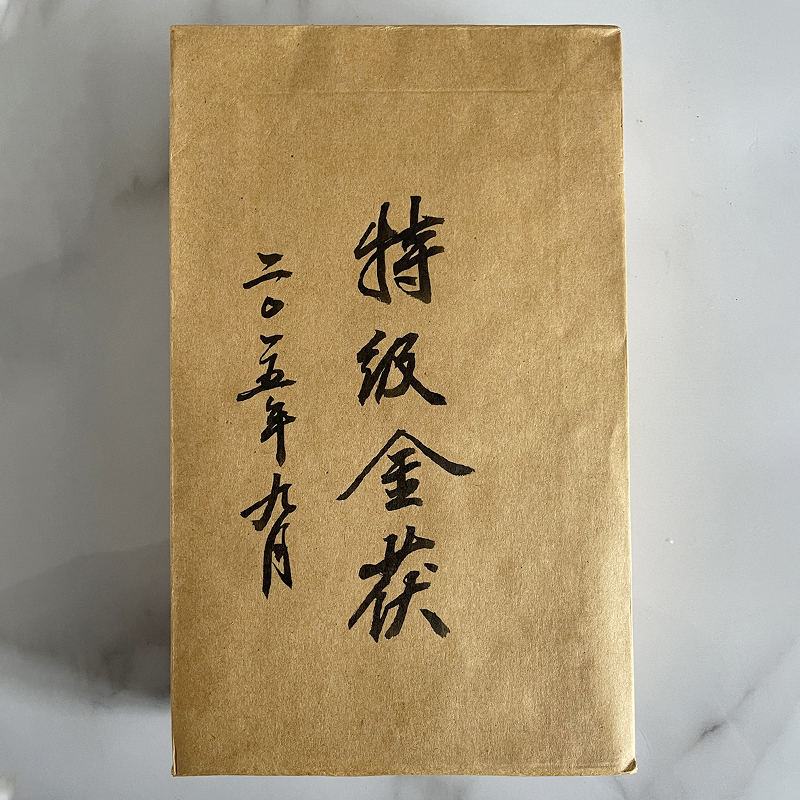 特级金茯
二〇一五年九月